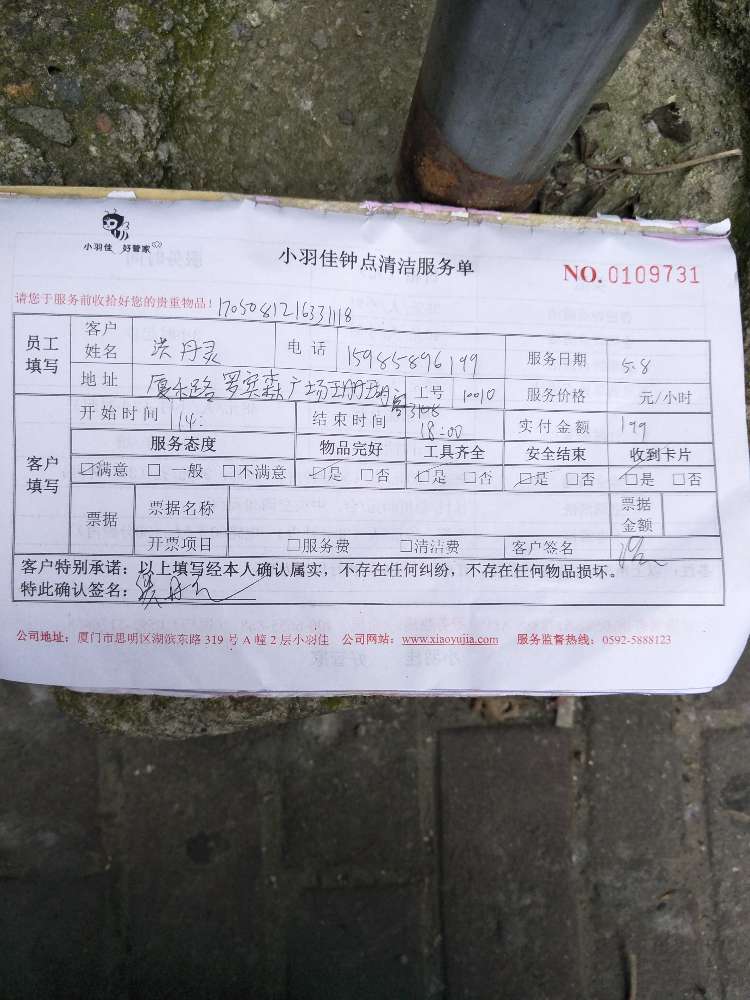 小羽佳 好管家
小羽佳钟点清洁服务单
NO. 0109731
请您于服务前收拾好您的贵重物品！1705081216331118
员工填写 客户姓名 洪丹灵 电话 15985896199 服务日期 5.8
地址 厦禾路罗宾森广场 工号 10010 服务价格 元/小时
客户填写 开始时间 14: 结束时间 18:00 实付金额 199
服务态度 物品完好 工具齐全 安全结束 收到卡片
☑满意 □一般 □不满意 ☑是 □否 ☑是 □否 ☑是 □否 ☑是 □否
票据 票据名称 票据金额
开票项目 □服务费 □清洁费 客户签名
客户特别承诺：以上填写经本人确认属实，不存在任何纠纷，不存在任何物品损坏。
特此确认签名：
公司地址：厦门市思明区湖滨东路 319 号 A 幢 2 层小羽佳 公司网站：www.xiaoyujia.com 服务监督热线：0592-5888123